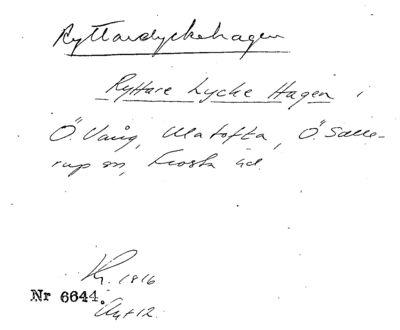 Ryttarelyckehagen
Ryttare Lycke Hagen i
Ö. Vång, Matofta, Ö. Salle-
rup sn, Frosta hd.
1816
Nr 6644.
Akt 12.